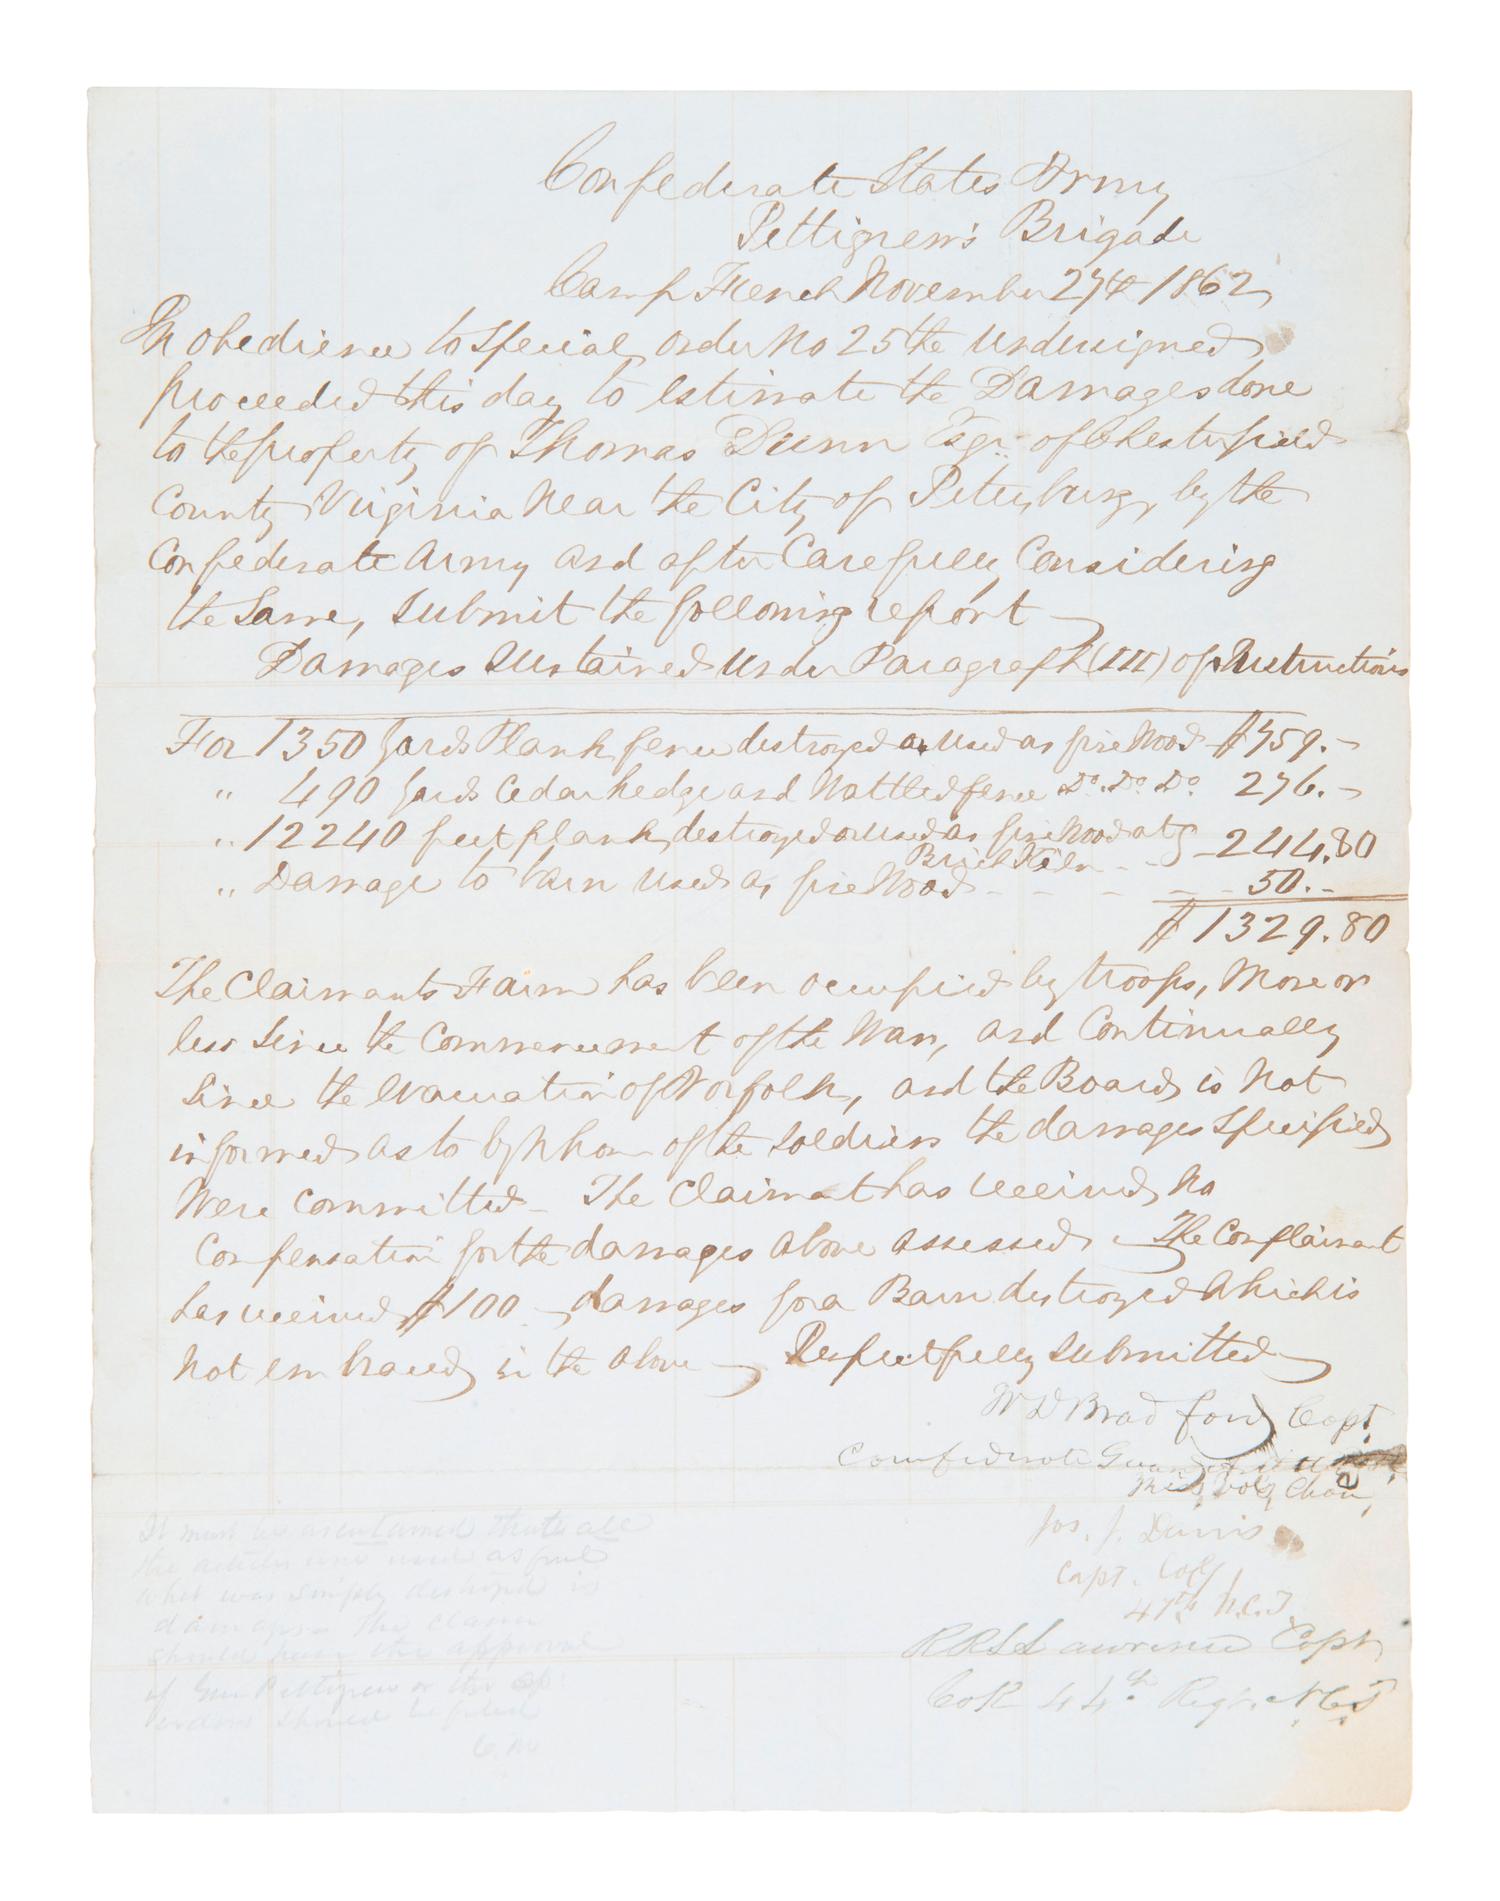 Confederate States Army
Pettigrew's Brigade
Camp French November 27th 1862
In obedience to Special order No 25 the undersigned
proceeded this day to estimate the Damages done
to the property of Thomas Dunn Esqr. of Chesterfield
County Virginia Near the City of Petersburg, by the
Confederate Army and after Carefully Considering
the Same, submit the following report
Damages Sustained under Paragraph (III) of Instructions
For 1350 yards Plank fence destroyed or used as fire Wood $759.-
" 490 yards Cedar hedge and Wattled fence Do. Do. Do. 276.-
" 12240 feet plank destroyed or used as fire Wood at 244.80
Brick Kiln
" Damage to barn used as fire Wood - - - - 50.-
$1329.80
The Claimants Farm has been occupied by troops, More or
less Since the Commencement of the War, and Continually
Since the Evacuation of Norfolk, and the Board is Not
informed as to by Whom of the soldiers the damages Specified
Were Committed - The Claimant has received No
Compensation for the damages above assessed. The Complainant
has received $100 damages for a Barn destroyed Which is
Not embraced in the above Respectfully Submitted
W D Bradford Capt.
Confederate Guard
Miss. Vols, Chan,
Jos. J. Davis
Capt. Co G
47th N.C.T.
R R L Lawrence Capt
Co K 44th Regt. N.C.T
It must be ascertained that all
the articles were used as fuel
what was simply destroyed is
damages. The claim
should have the approval
of Gen Pettigrew or the
orders should be filed